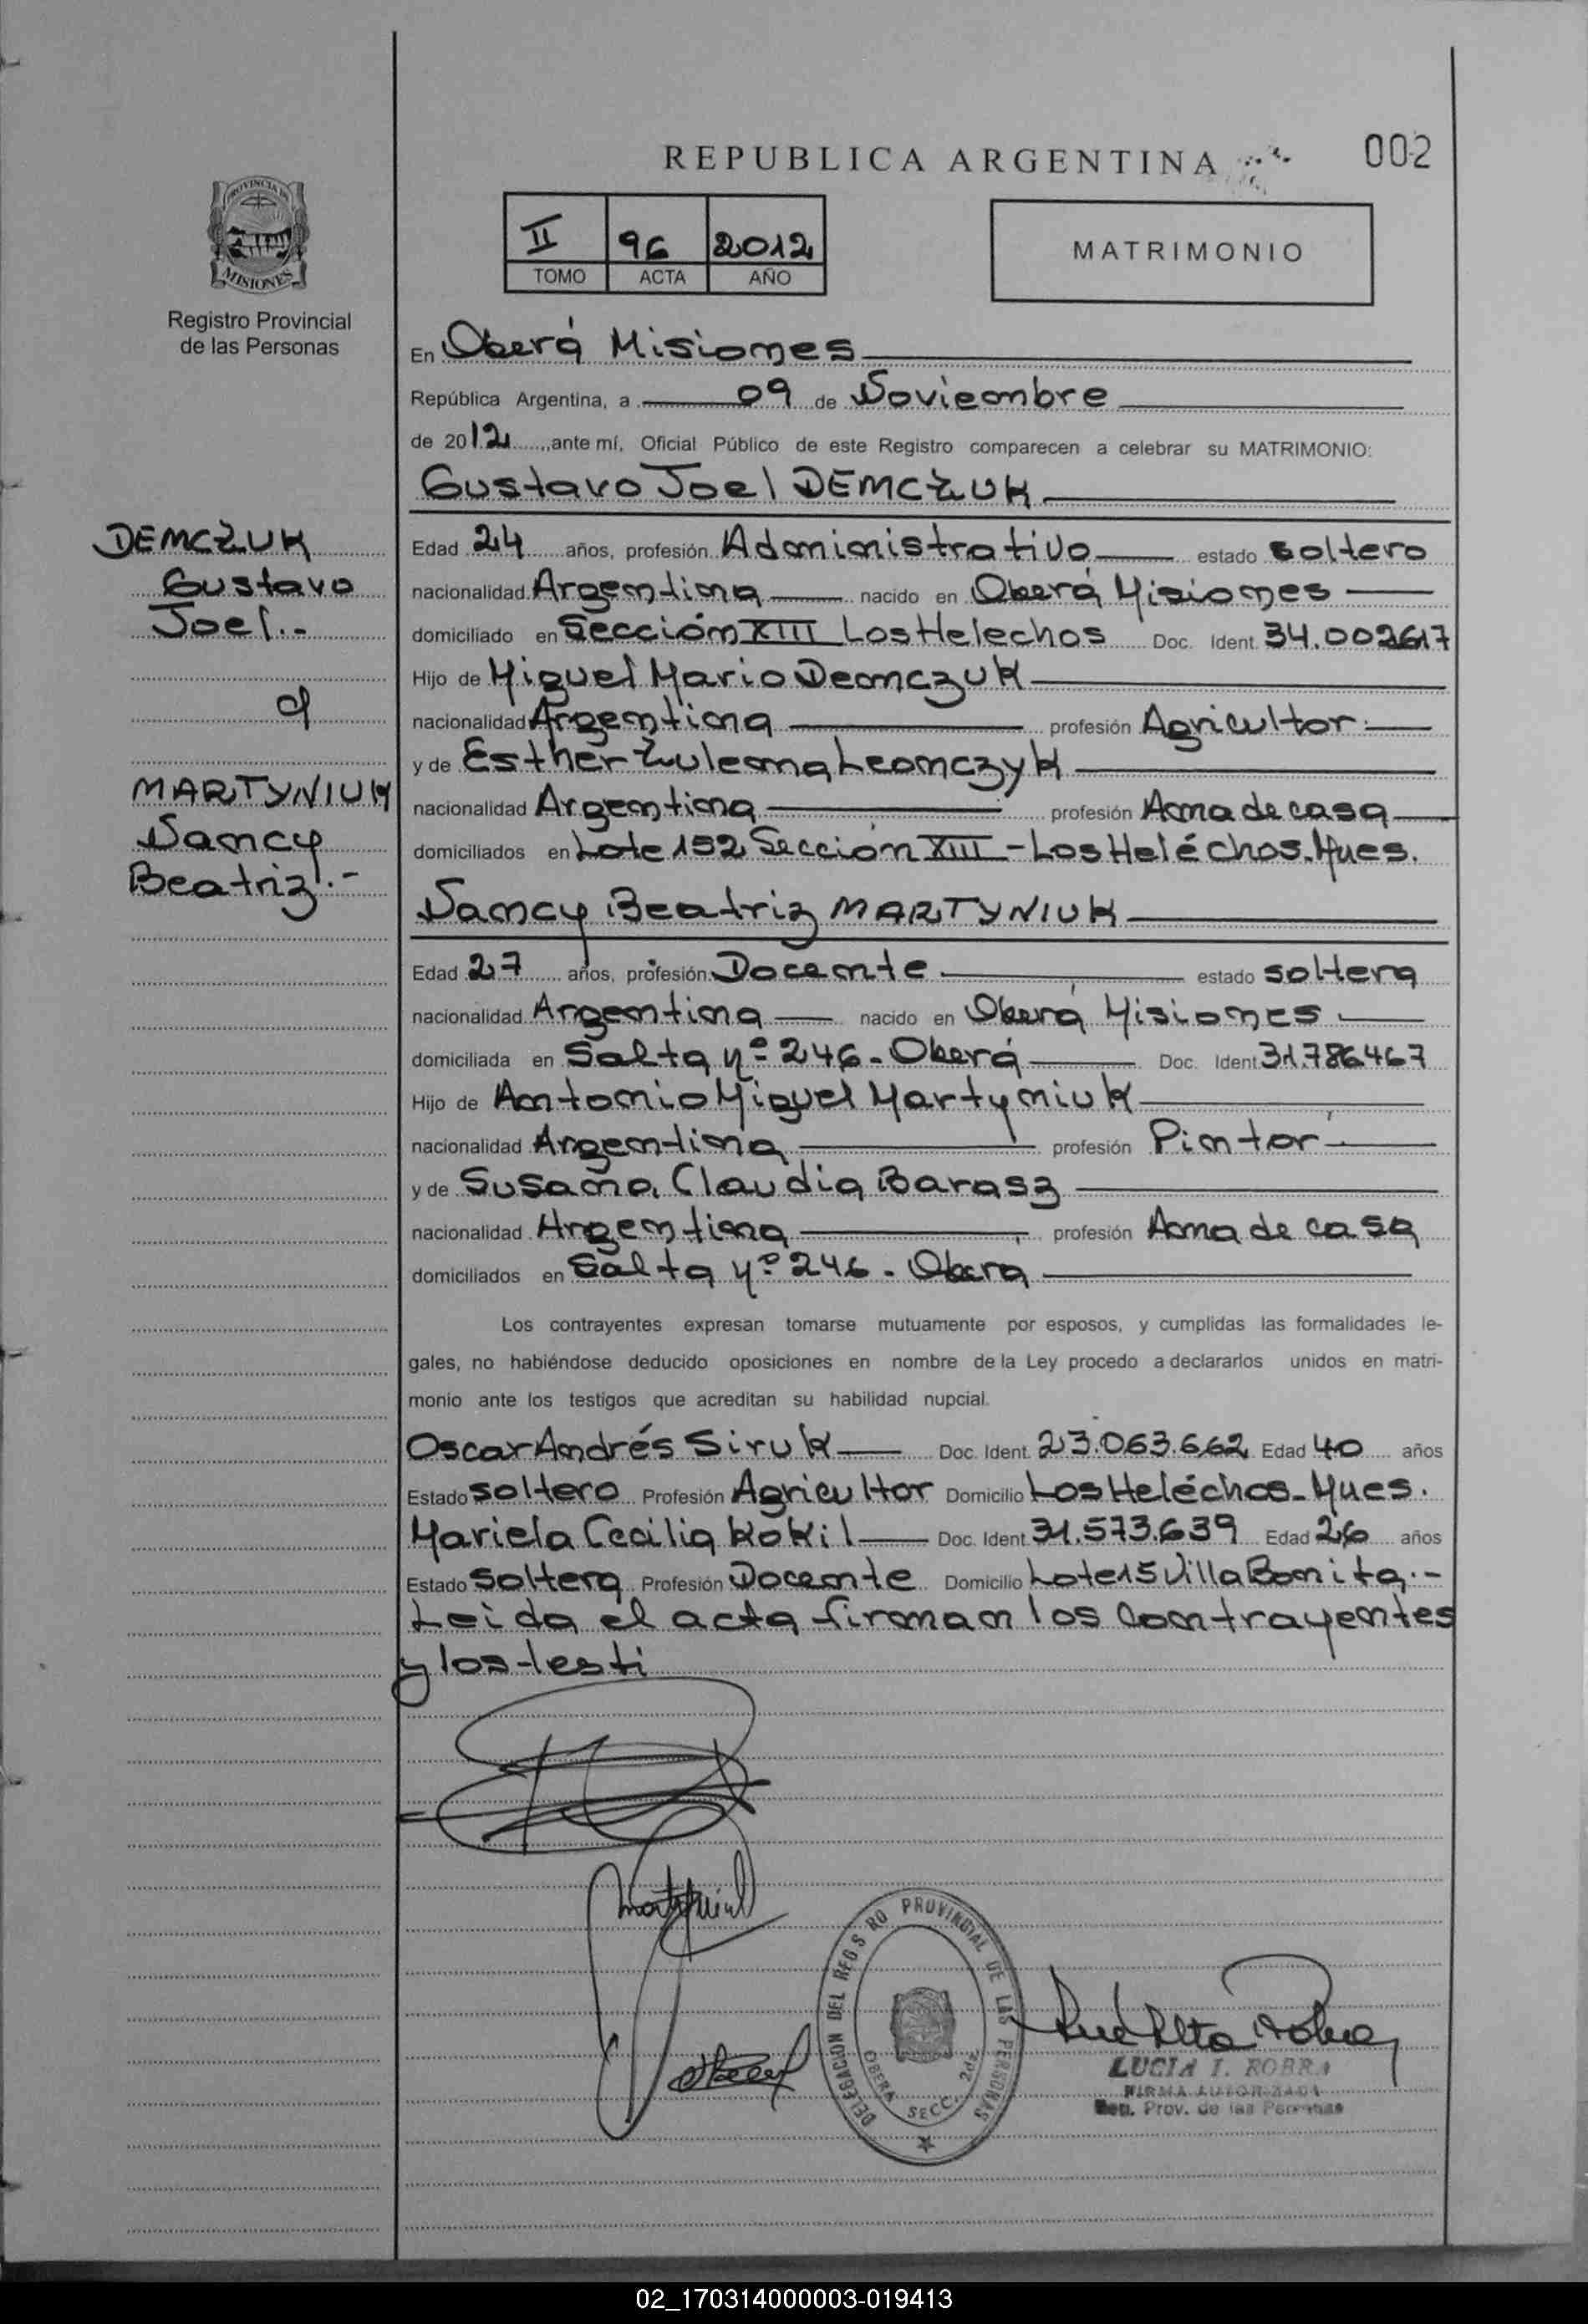 REPUBLICA ARGENTINA
002
PROVINCIA DE
MISIONES
Registro Provincial
de las Personas
II 96 2012
TOMO ACTA AÑO
MATRIMONIO
En Oberá Misiones
República Argentina, a 09 de Noviembre
de 2012, ante mí, Oficial Público de este Registro comparecen a celebrar su MATRIMONIO:
Gustavo Joel DEMCZUK
DEMCZUK
Gustavo
Joel.-
c/
MARTYNIUK
Nancy
Beatriz.-
Edad 24 años, profesión Administrativo estado soltero
nacionalidad Argentina nacido en Oberá Misiones
domiciliado en Sección XIII Los Helechos Doc. Ident. 34.002617
Hijo de Miguel Mario Demczuk
nacionalidad Argentina profesión Agricultor
y de Esther Zulema Leonczyk
nacionalidad Argentina profesión Ama de casa
domiciliados en Lote 152 Sección XIII - Los Heléchos. Mnes.
Nancy Beatriz MARTYNIUK
Edad 27 años, profesión Docente estado soltera
nacionalidad Argentina nacido en Oberá Misiones
domiciliada en Salta Nº 246 - Oberá Doc. Ident 31.786467
Hijo de Antonio Miguel Martyniuk
nacionalidad Argentina profesión Pintor
y de Susana Claudia Barasz
nacionalidad Argentina profesión Ama de casa
domiciliados en Salta Nº 246 - Obera
Los contrayentes expresan tomarse mutuamente por esposos, y cumplidas las formalidades le-
gales, no habiéndose deducido oposiciones en nombre de la Ley procedo a declararlos unidos en matri-
monio ante los testigos que acreditan su habilidad nupcial.
Oscar Andrés Siruk Doc. Ident. 23.063.662 Edad 40 años
Estado soltero Profesión Agricultor Domicilio Los Heléchos - Mnes.
Mariela Cecilia Kokil Doc. Ident 31.573.639 Edad 26 años
Estado soltera Profesión Docente Domicilio Lote 15 Villa Bonita.-
Leida el acta firman los Contrayentes
y los testi
DELEGACION DEL REGISRO PROVINCIAL DE LAS PERSONAS
OBERA SECC. 2da
LUCIA I. ROBRA
FIRMA AUTORIZADA
Reg. Prov. de las Personas
02_170314000003-019413